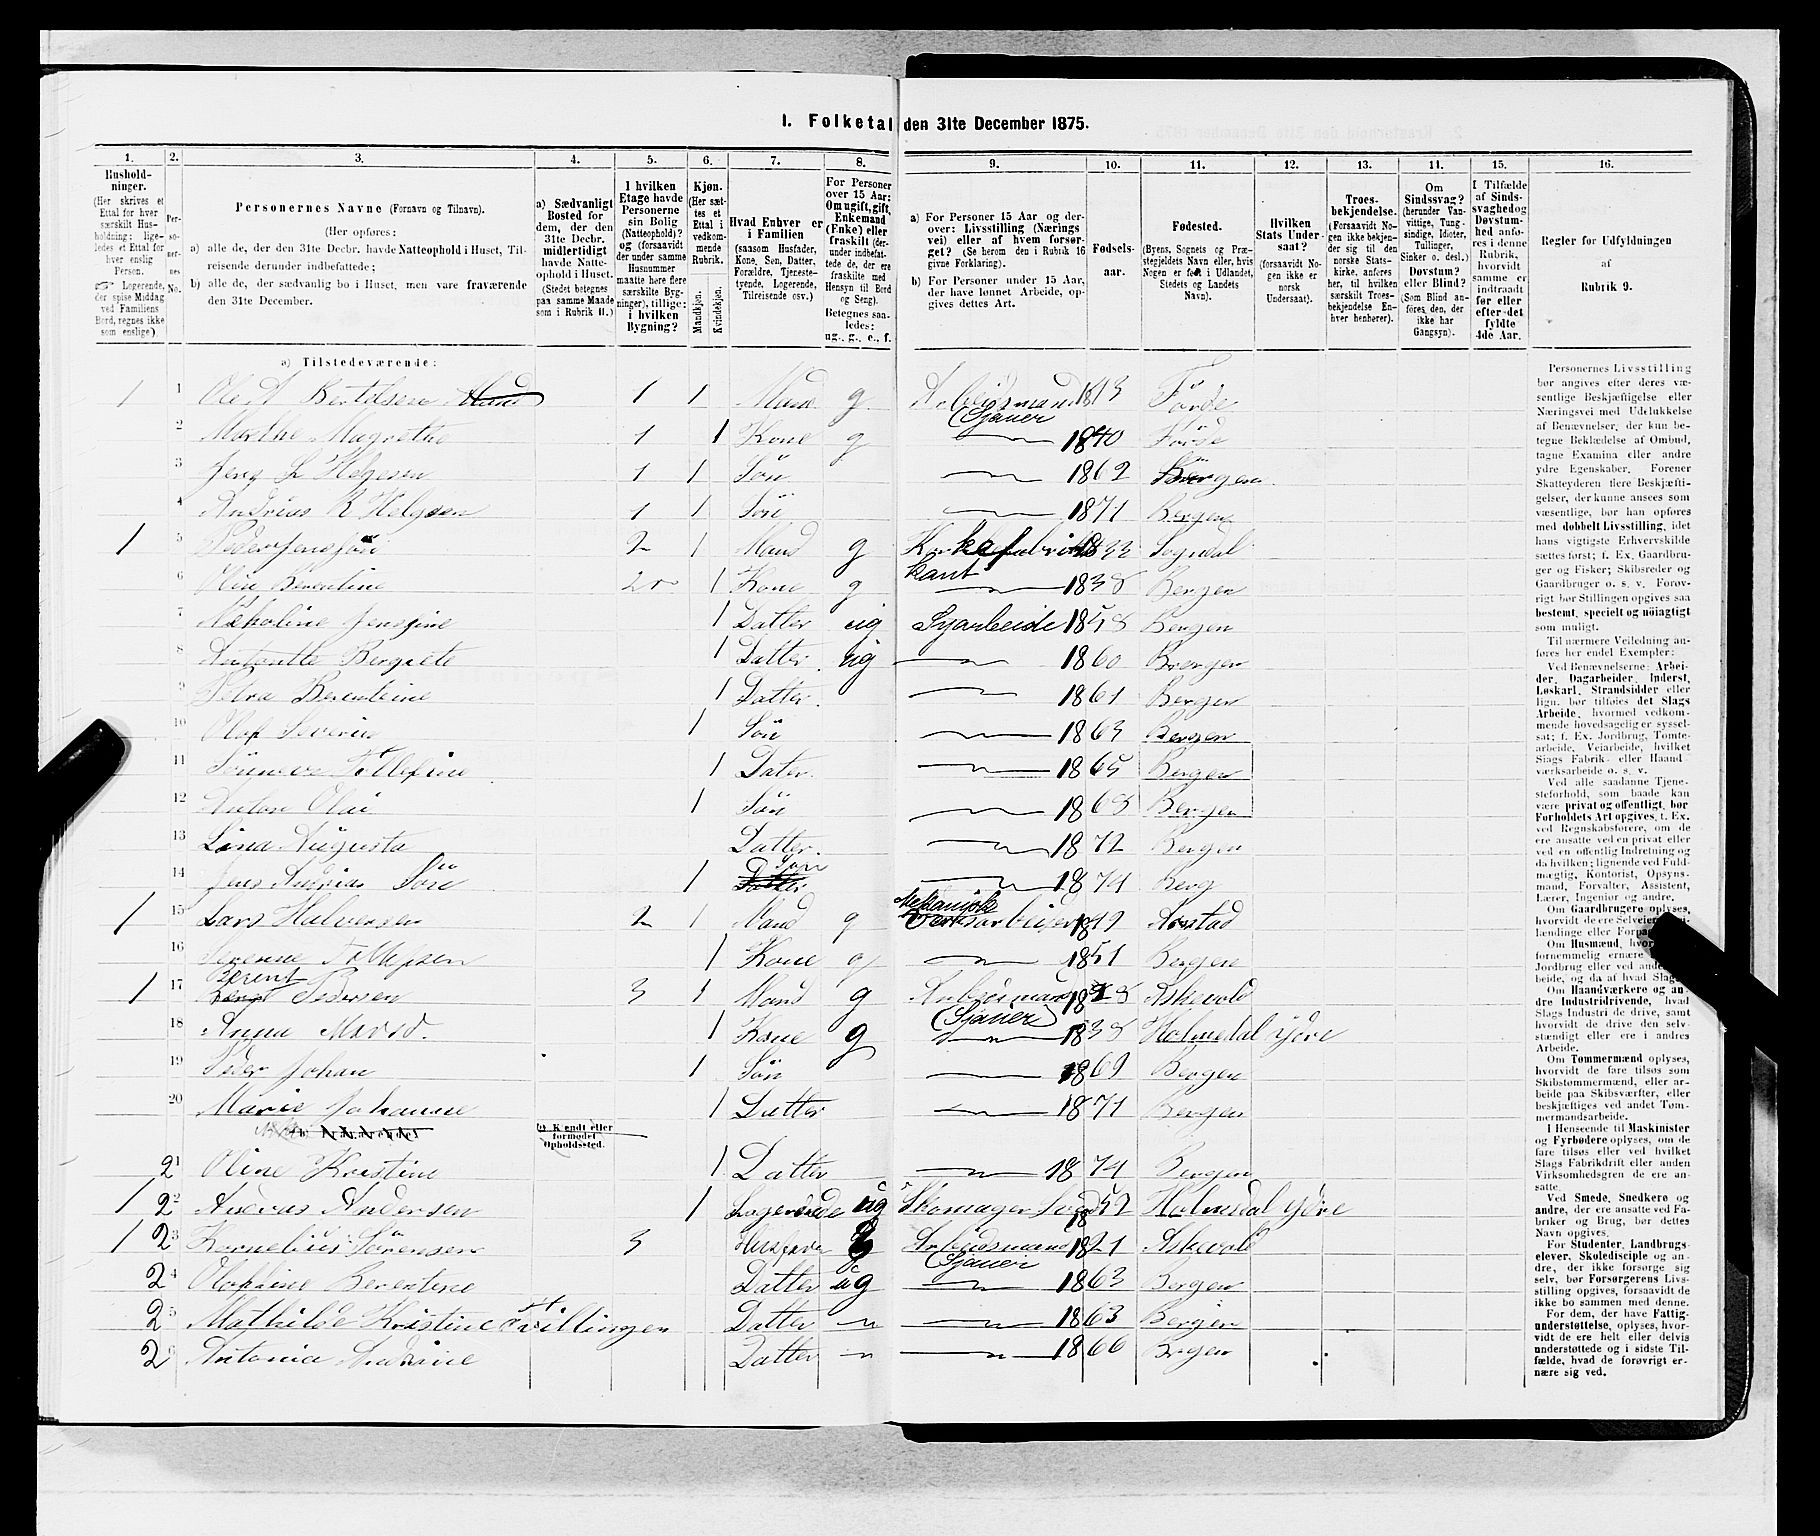 1. Folketal den 31te December 1875.
1. 2. 3. 4. 5. 6. 7. 8. 9. 10. 11. 12. 13. 14. 15. 16.
Husholdninger. (Her skrives et Ettal for hver særskilt Husholdning; ligeledes et Ettal for hver enslig Person. Logerende, der spise Middag ved Familiens Bord, regnes ikke som enslige.)
Personernes No.
Personernes Navne (Fornavn og Tilnavn).
(Her opføres:
a) alle de, der den 31te Decbr. havde Natteophold i Huset, Tilreisende derunder indbefattede;
b) alle de, der sædvanlig bo i Huset, men vare fraværende den 31te December.
a) Sædvanligt Bosted for dem, der den 31te Decbr. midlertidigt havde Natteophold i Huset. (Stedet betegnes paa samme Maade som i Rubrik 11.)
I hvilken Etage havde Personerne sin Bolig (Natteophold)? og (forsaavidt der under samme Husnummer maatte høre flere særskilte Bygninger), tillige: i hvilken Bygning?
Kjøn. (Her sættes et Ettal i vedkommende Rubrik.
Mandkjøn. Kvindekjøn.
Hvad Enhver er i Familien (saasom Husfader, Kone, Søn, Datter, Forældre, Tjenestetyende, Logerende, Tilreisende osv.)
For Personer over 15 Aar: Om ugift, gift, Enkemand (Enke) eller fraskilt (derunder indbefattede de, der ere fraskilte med Hensyn til Bord og Seng). Betegnes saaledes: ug., g., e., f.
a) For Personer 15 Aar og derover: Livsstilling (Næringsvei) eller af hvem forsørget? (Se herom den i Rubrik 16 givne Forklaring).
b) For Personer under 15 Aar, der have lønnet Arbeide, opgives dettes Art.
Fødselsaar.
Fødested. (Byens, Sognets og Præstegjeldets Navn eller, hvis Nogen er født i Udlandet, Stedets og Landets Navn).
Hvilken Stats Undersaat? (forsaavidt Nogen ikke er norsk Undersaat).
Troesbekjendelse. (Forsaavidt Nogen ikke bekjender sig til den norske Statskirke, anføres her, til hvilken særskilt Troesbekjendelse Enhver henhører).
Om Sindssvag? (herunder Vanvittige, Tungsindige, Idioter, Tullinger, Sinker o. desl.) Døvstum? eller Blind? (Som Blind anføres den, der ikke har Gangsyn).
I Tilfælde af Sindssvaghed og Døvstumhed anføres i denne Rubrik, hvorvidt samme er indtraadt før eller efter det fyldte 4de Aar.
Regler for Udfyldningen af Rubrik 9.
a) Tilstedeværende:
1 1 Ole A Bertelsen 1 1 Mand g Arbeidsmand (Sjauer 1813 Førde
2 Marthe Magrethe 1 1 Kone g 1840 Førde
3 Jens L Helgesen 1 1 Søn 1862 Bergen
4 Andreas R Helgesen 1 1 Søn 1871 Bergen
1 5 Peder Jenssøn 2 1 Mand g Korkefabrikant 1833 Sogndal
6 Oline Berentine 2 1 Kone g 1838 Bergen
7 Nikoline Jensine 1 Datter ug Syarbeide 1858 Bergen
8 Antonette Bergitte 1 Datter ug 1860 Bergen
9 Petra Berentine 1 Datter 1861 Bergen
10 Olaf Severin 1 Søn 1863 Bergen
11 Tollefine 1 Dater 1865 Bergen
12 Anton Olai 1 Søn 1868 Bergen
13 Lina Augusta Datter 1872 Bergen
14 Jens Andreas Søn 1 Søn 1874 Berg
1 15 Lars Halvorsen 2 1 Mand g Mekanisk Verksarbeider 1849 Aarstad
16 Serenne Tollefsen 1 Kone g 1851 Bergen
1 17 Berent Pedersen 3 1 Mand g Arbeidsmand (Sjauer) 1828 Askevold
18 Anna 1 Kone g 1838 Holmedal ydre
19 Peder Johan 1 Søn 1869 Bergen
20 Marie Johanne 1 Datter 1871 Bergen
b) Kjendt eller formodet Opholdssted.
21 Oline Kristine 1 Datter 1874 Bergen
1 22 Andreas Andersen 1 Logerende ug Skomager Svend 1852 Holmedal ydre
1 23 Kornelius Sørensen 3 Husfader Arbeidsmand Sjauer 1821 Askevold
24 Olefine Berentine Datter ug 1863 Bergen
25 Mathilde Kristine Tvillinger Datter 1863 Bergen
26 Antonia Andrine Datter 1866 Bergen
Personernes Livsstilling
bør angives efter deres væ-
sentlige Beskjæftigelse eller
Næringsvei med Udelukkelse
af Benævnelser, der kun be-
tegne Beklædelse af Ombud,
tagne Examina eller andre
ydre Egenskaber. Forener
Skatteyderen flere Beskjæfti-
gelser, der kunne ansees som
væsentlige, bør han opføres
med dobbelt Livsstilling, idet
hans vigtigste Erhvervskilde
sættes først; f. Ex. Gaardbru-
ger og Fisker; Skibsreder og
Gaardbruger o. s. v. Forøv-
rigt bør Stillingen opgives saa
bestemt, specielt og nöiagtigt
som muligt.
Til nærmere Veiledning an-
føres her endel Exempler:
Ved Benævnelserne: Arbei-
der, Dagarbeider, Inderst,
Løskarl, Strandsidder eller
lign. bør tilføies det Slags
Arbeide, hvormed vedkom-
mende hovedsagelig er syssel-
sat; f. Ex. Jordbrug, Tomte-
arbeide, Veiarbeide, hvilket
Slags Fabrik- eller Haand-
værksarbeide o. s. v.
Ved alle saadanne Tjene-
steforhold, som baade kan
være privat og offentligt, bør
Forholdets Art opgives, f. Ex.
ved Regnskabsførere, om de
ere ansatte ved en privat eller
ved en offentlig Indretning og
da hvilken; lignende ved Fuld-
mægtig, Kontorist, Opsyns-
mand, Forvalter, Assistent,
Lærer, Ingenior og andre.
Om Gaardbrugere oplyses,
hvorvidt de ere Selveiere,
lændinge eller
Om Husmænd,
fornemmelig ernære
Jordbrug eller ved andet
beide, og da af hvad Slags.
Om Haandværkere og an-
dre Industridrivende, hvad
Slags Industri de drive, samt
hvorvidt de drive den selv-
stændigt eller ere i andres
Arbeide.
Om Tømmermænd oplyses,
hvorvidt de fare tilsøs som
Skibstømmermænd, eller ar-
beide paa Skibsværfter, eller
beskjæftiges ved andet Tøm-
mermandsarbeide.
I Henseende til Maskinister
og Fyrbødere oplyses, om de
fare tilsøs eller ved hvilket
Slags Fabrikdrift eller anden
Virksomhedsgren de ere an-
satte.
Ved Smede, Snedkere og
andre, der ere ansatte ved Fa-
briker og Brug, bør dettes
Navn opgives.
For Studenter, Landbrugs-
elever, Skoledisciple og an-
dre, der ikke forsørge sig
selv, bør Forsørgerens Livs-
stilling opgives, forsaavidt de
ikke bo sammen med denne.
For dem, der have Fattig-
understøttelse, oplyses, hvor-
vidt de ere helt eller delvis
understøttede og i sidste Til-
fælde, hvad de forøvrigt er-
nære sig ved.